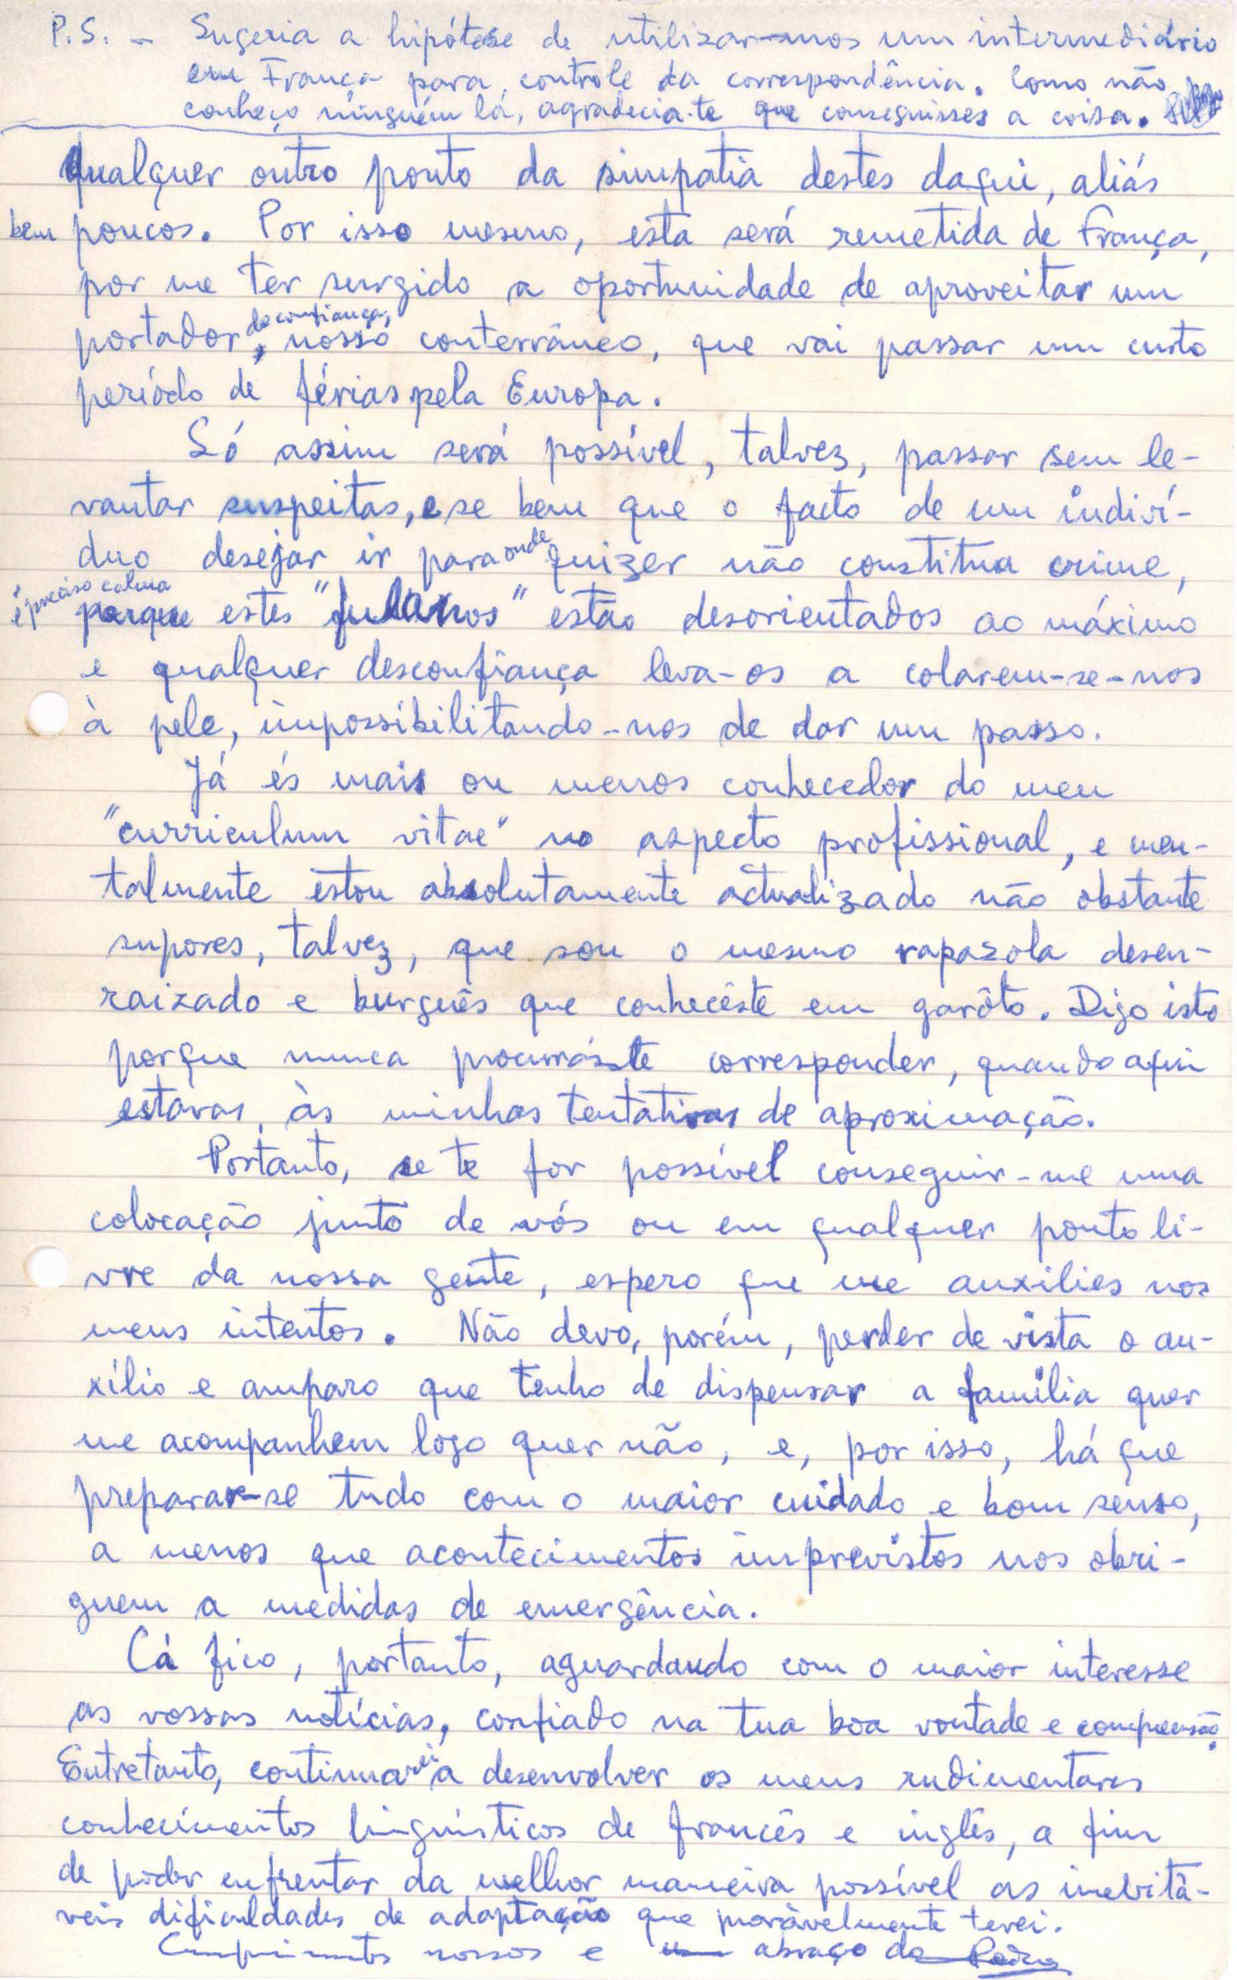 P.S. - Sugeria a hipótese de utilizar-mos um intermediário
em França para controle da correspondência. Como não
conheço ninguém lá, agradecia-te que conseguisses a coisa.
qualquer outro ponto da simpatia destes daqui, aliás
bem poucos. Por isso mesmo, esta será remetida de França,
por me ter surgido a oportunidade de aproveitar um
portador, de confiança, nosso conterrâneo, que vai passar um curto
período de férias pela Europa.
Só assim será possível, talvez, passar sem le-
vantar suspeitas, e se bem que o facto de um indiví-
duo desejar ir para onde quizer não constitua crime,
é preciso calma porque estes "fulanos" estão desorientados ao máximo
e qualquer desconfiança leva-os a colarem-se-nos
à pele, impossibilitando-nos de dar um passo.
Já és mais ou menos conhecedor do meu
"curriculum vitae" no aspecto profissional, e men-
talmente estou absolutamente actualizado não obstante
supores, talvez, que sou o mesmo rapazola desen-
raizado e burguês que conhecêste em garôto. Digo isto
porque nunca procuráste corresponder, quando aqui
estavas, às minhas tentativas de aproximação.
Portanto, se te for possível conseguir-me uma
colocação junto de vós ou em qualquer ponto li-
vre da nossa gente, espero que me auxilies nos
meus intentos. Não devo, porém, perder de vista o au-
xílio e amparo que tenho de dispensar a família quer
me acompanhem logo quer não, e, por isso, há que
preparar-se tudo com o maior cuidado e bom senso,
a menos que acontecimentos imprevistos nos obri-
guem a medidas de emergência.
Cá fico, portanto, aguardando com o maior interesse
as vossas notícias, confiado na tua boa vontade e compreensão.
Entretanto, continuarei a desenvolver os meus rudimentares
conhecimentos linguísticos de francês e inglês, a fim
de poder enfrentar da melhor maneira possível as inevitá-
veis dificuldades de adaptação que provàvelmente terei.
Cumprimentos nossos e um abraço do